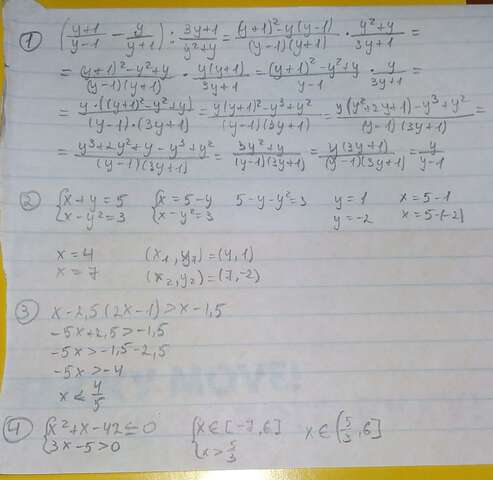 1) ((y+1)/(y-1) - y/(y+1)) : (3y+1)/(y²+y) = ((y+1)²-y(y-1))/((y-1)(y+1)) · (y²+y)/(3y+1) =
= ((y+1)²-y²+y)/((y-1)(y+1)) · y(y+1)/(3y+1) = ((y+1)²-y²+y)/(y-1) · y/(3y+1) =
= y·((y+1)²-y²+y)/((y-1)·(3y+1)) = (y(y+1)²-y³+y²)/((y-1)(3y+1)) = (y(y²+2y+1)-y³+y²)/((y-1)(3y+1)) =
= (y³+2y²+y-y³+y²)/((y-1)(3y+1)) = (3y²+y)/((y-1)(3y+1)) = y(3y+1)/((y-1)(3y+1)) = y/(y-1)
2) {x+y=5 {x=5-y 5-y-y²=3 y=1 x=5-1
{x-y²=3 {x-y²=3 y=-2 x=5-(-2)
x=4 (x₁,y₁)=(4,1)
x=7 (x₂,y₂)=(7,-2)
3) x-2,5(2x-1)>x-1,5
-5x+2,5>-1,5
-5x>-1,5-2,5
-5x>-4
x<4/5
4) {x²+x-42≤0 {x∈[-7,6] x∈(5/3,6]
{3x-5>0 {x>5/3